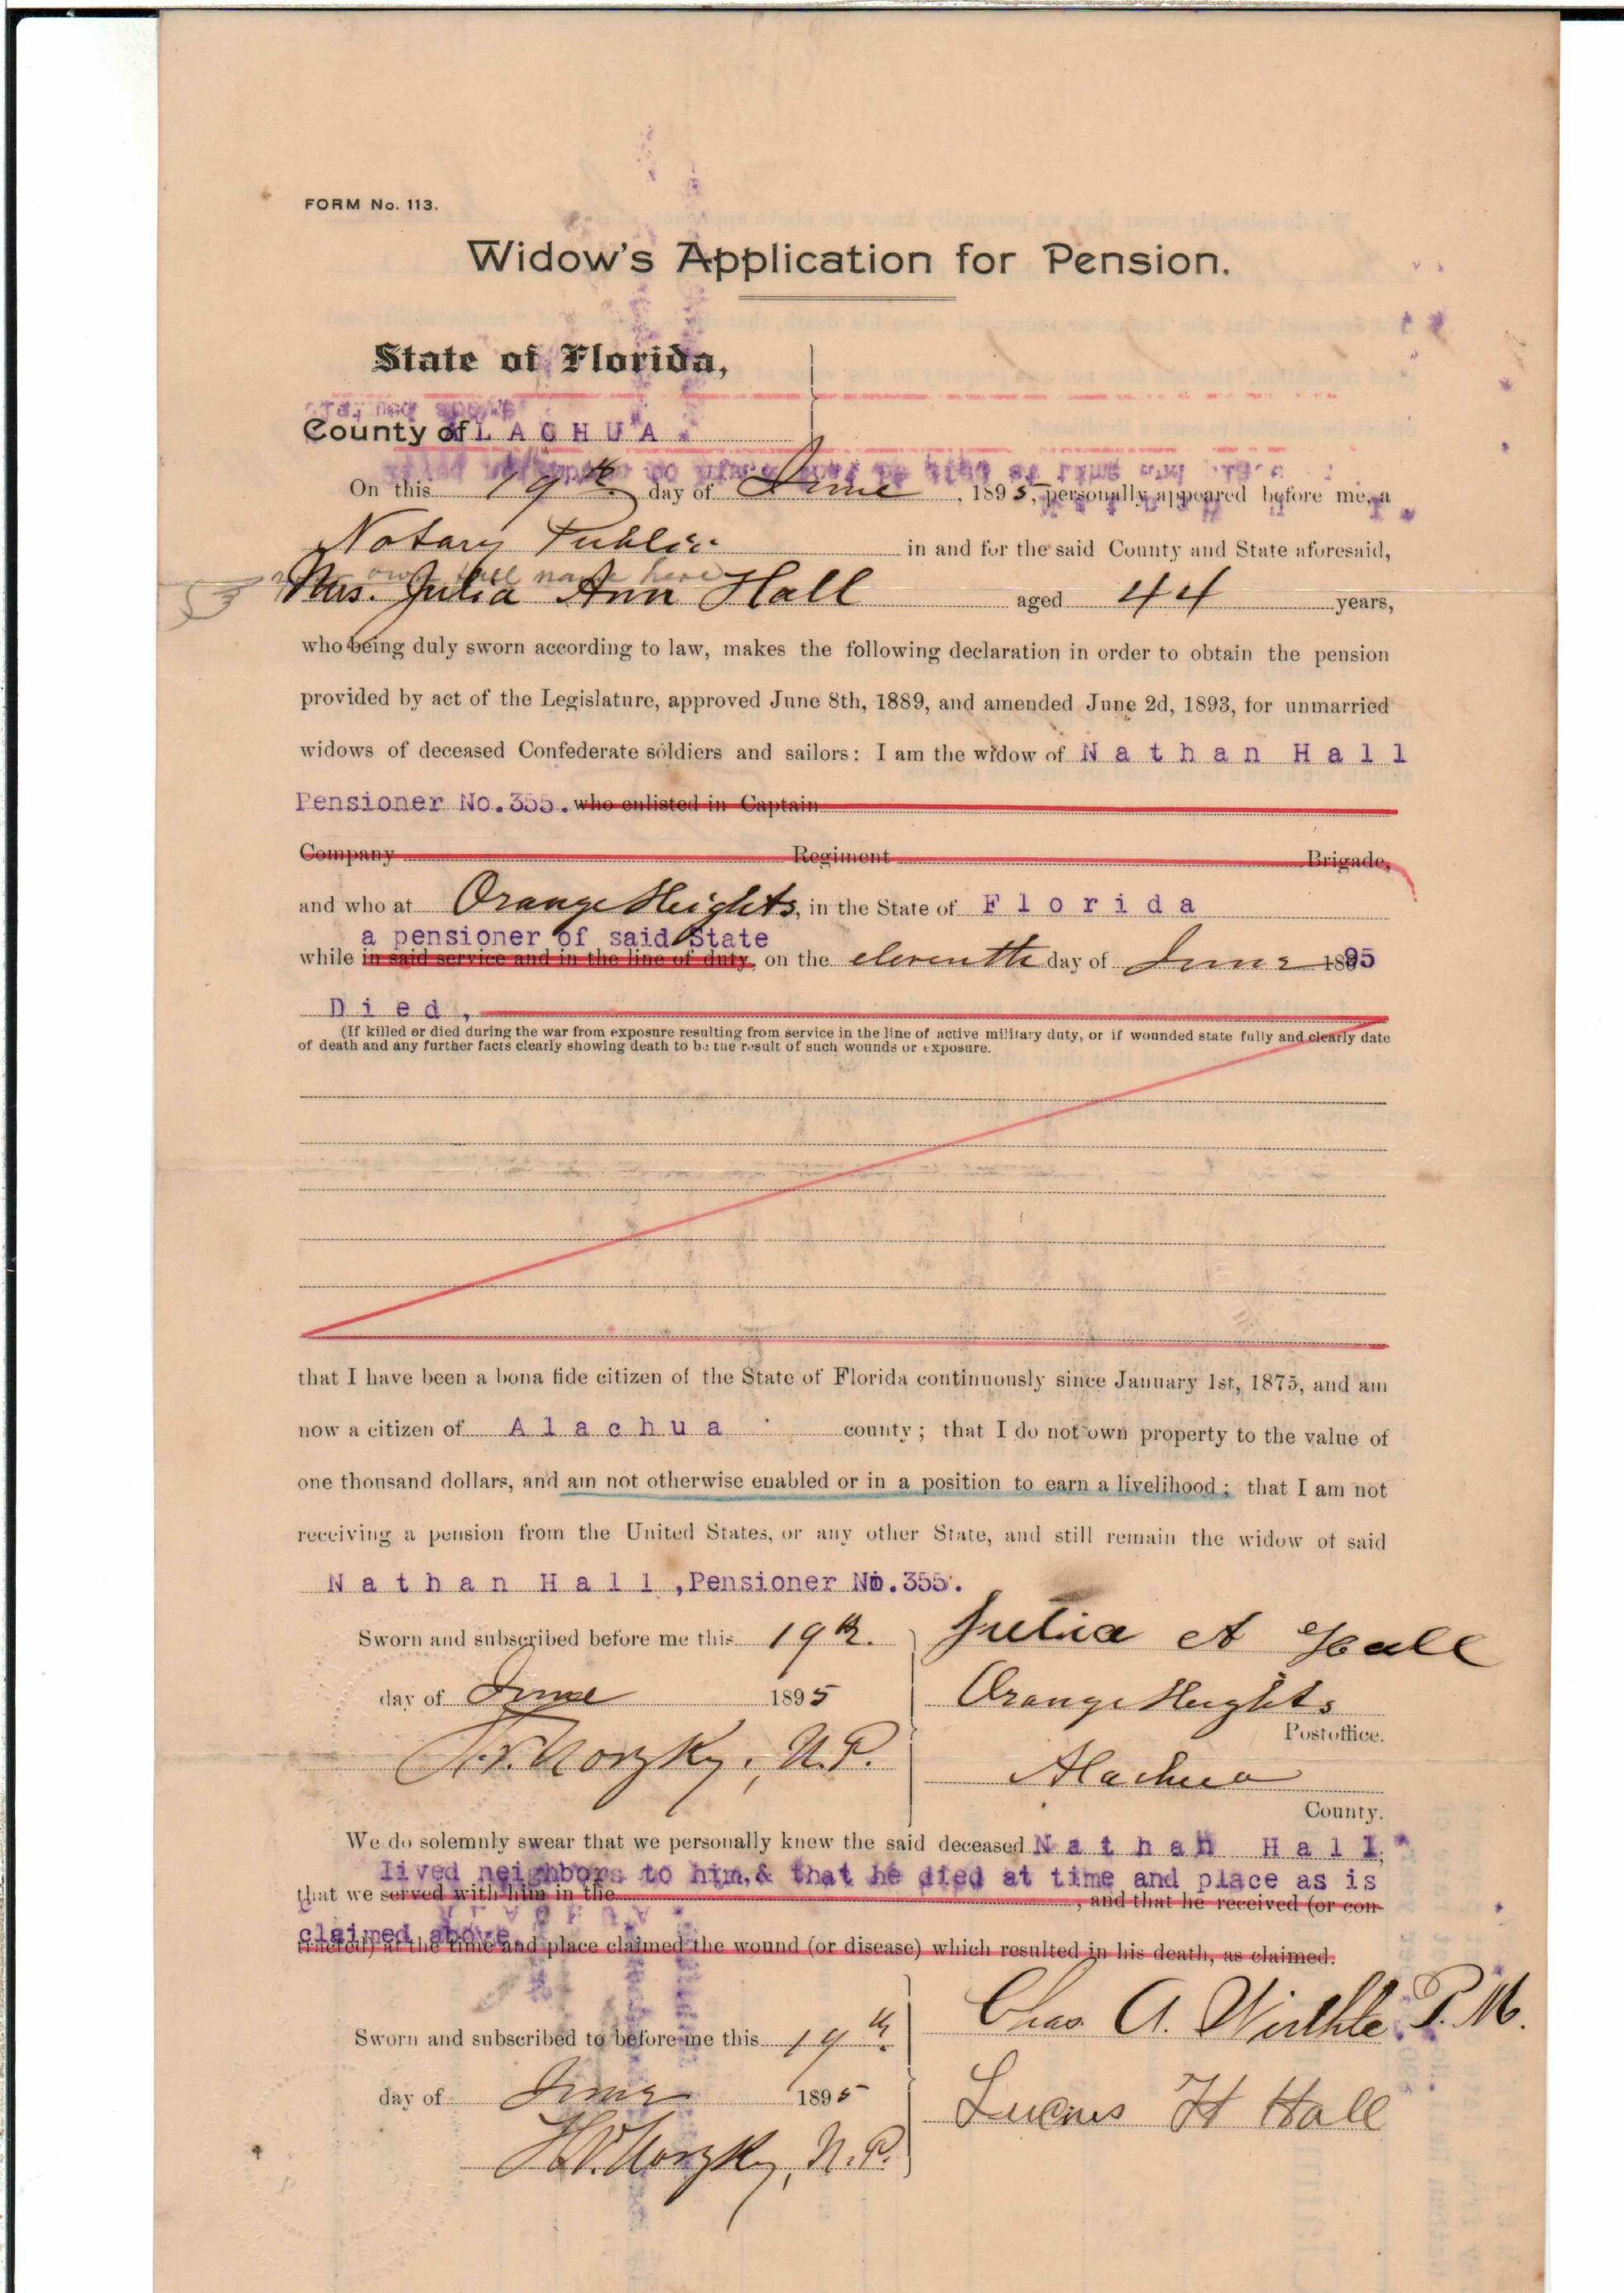 FORM No. 113.
Widow's Application for Pension.
State of Florida,
County of A L A C H U A
On this 19th day of June, 1895, personally appeared before me, a
Notary Public in and for the said County and State aforesaid,
own full name here
Mrs. Julia Ann Hall aged 44 years,
who being duly sworn according to law, makes the following declaration in order to obtain the pension
provided by act of the Legislature, approved June 8th, 1889, and amended June 2d, 1893, for unmarried
widows of deceased Confederate soldiers and sailors: I am the widow of N a t h a n H a l l
Pensioner No.355. who enlisted in Captain
Company Regiment Brigade,
and who at Orange Heights, in the State of F l o r i d a
a pensioner of said State
while in said service and in the line of duty, on the eleventh day of June 1895
D i e d ,
(If killed or died during the war from exposure resulting from service in the line of active military duty, or if wounded state fully and clearly date
of death and any further facts clearly showing death to be the result of such wounds or exposure.
that I have been a bona fide citizen of the State of Florida continuously since January 1st, 1875, and am
now a citizen of A l a c h u a county; that I do not own property to the value of
one thousand dollars, and am not otherwise enabled or in a position to earn a livelihood; that I am not
receiving a pension from the United States, or any other State, and still remain the widow of said
N a t h a n H a l l ,Pensioner No.355.
Sworn and subscribed before me this 19th. Julia A Hall
day of June 1895 Orange Heights
Postoffice.
N.P.
Alachua
County.
We do solemnly swear that we personally knew the said deceased N a t h a n H a l l,
lived neighbors to him,& that he died at time and place as is
that we served with him in the , and that he received (or con-
claimed above.
tracted) at the time and place claimed the wound (or disease) which resulted in his death, as claimed.
Chas. A. P.M.
Sworn and subscribed to before me this 19th.
day of June 1895 H Hall
N.P.